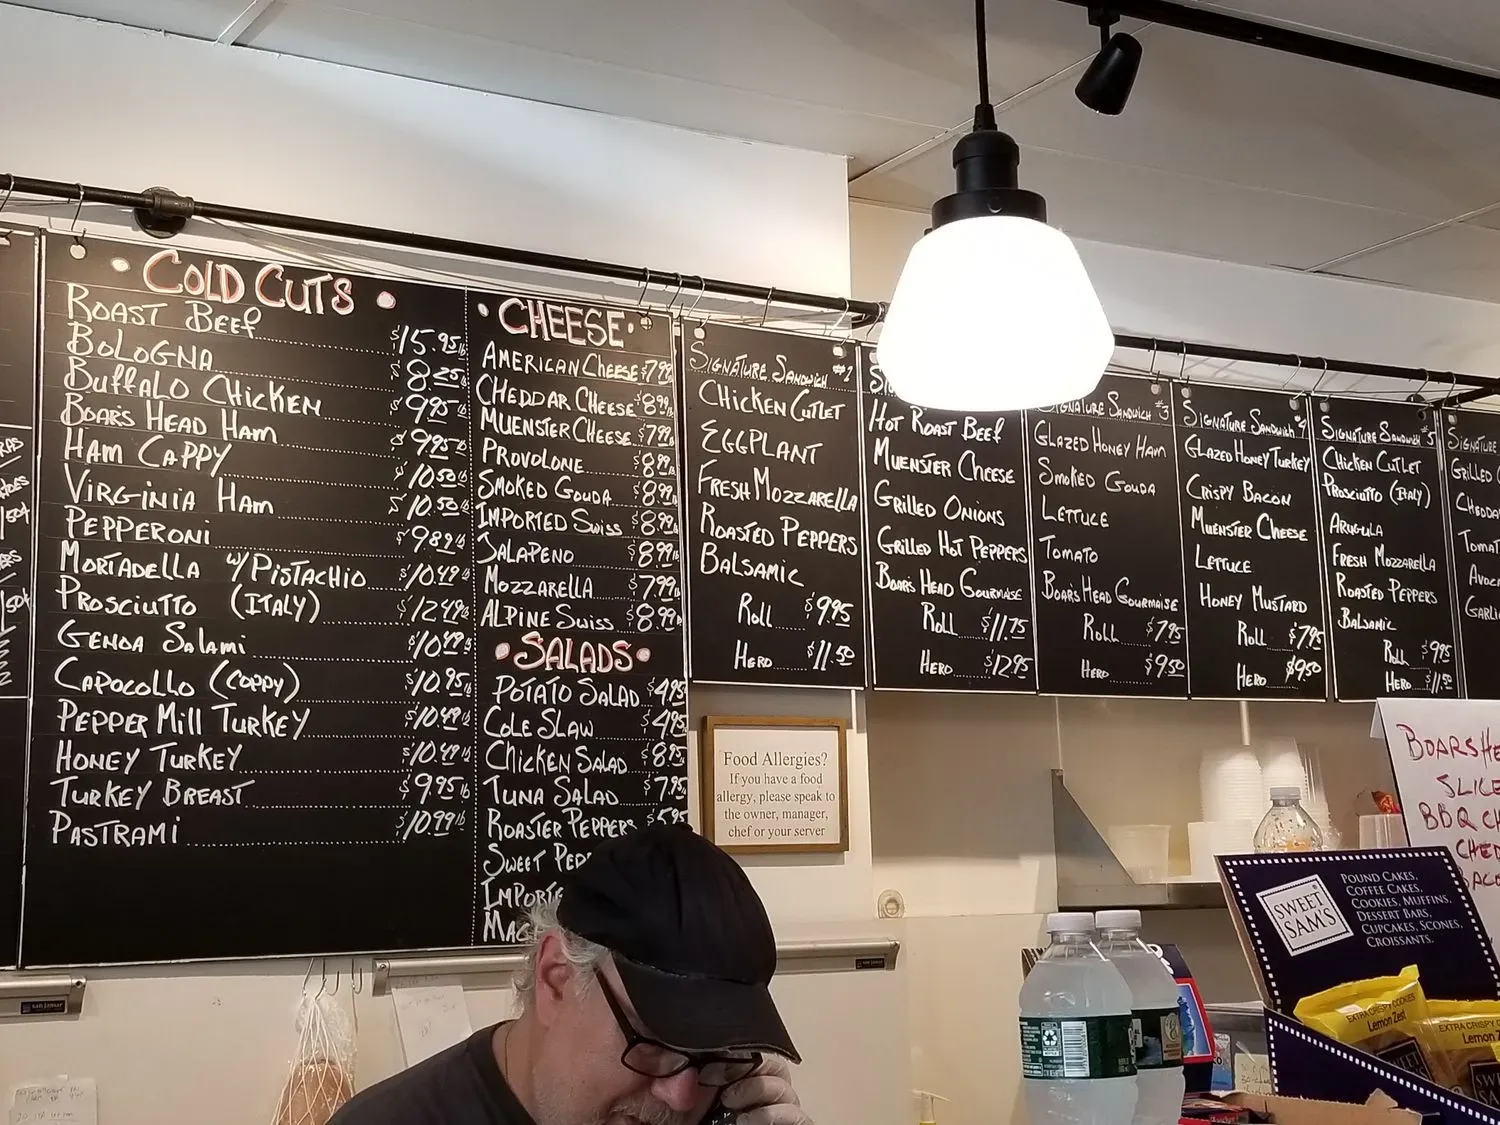 COLD CUTS
ROAST BEEF $15.95 lb
BOLOGNA $8.25 lb
BUFFALO CHICKEN $9.95 lb
BOARS HEAD HAM $9.95 lb
HAM CAPPY $10.50 lb
VIRGINIA HAM $10.50 lb
PEPPERONI $9.89 lb
MORTADELLA W/PISTACHIO $10.49 lb
PROSCIUTTO (ITALY) $12.49 lb
GENOA SALAMI $10.49 lb
CAPOCOLLO (COPPY) $10.95 lb
PEPPER MILL TURKEY $10.49 lb
HONEY TURKEY $10.49 lb
TURKEY BREAST $9.95 lb
PASTRAMI $10.99 lb
CHEESE
AMERICAN CHEESE $7.99
CHEDDAR CHEESE $8.99
MUENSTER CHEESE $7.99
PROVOLONE $8.99
SMOKED GOUDA $8.99
IMPORTED SWISS $8.99
JALAPENO $8.99
MOZZARELLA $7.99
ALPINE SWISS $8.99
SALADS
POTATO SALAD $4.95
COLE SLAW $4.95
CHICKEN SALAD $8.95
TUNA SALAD $7.95
ROASTER PEPPERS $5.95
SWEET
SIGNATURE SANDWICH #1
CHICKEN CUTLET
EGGPLANT
FRESH MOZZARELLA
ROASTED PEPPERS
BALSAMIC
ROLL $9.95
HERO $11.50
HOT ROAST BEEF
MUENSTER CHEESE
GRILLED ONIONS
GRILLED HOT PEPPERS
BOARS HEAD GOURMAISE
ROLL $11.75
HERO $12.95
SIGNATURE SANDWICH #3
GLAZED HONEY HAM
SMOKED GOUDA
LETTUCE
TOMATO
BOARS HEAD GOURMAISE
ROLL $7.95
HERO $9.50
SIGNATURE SANDWICH #4
GLAZED HONEY TURKEY
CRISPY BACON
MUENSTER CHEESE
LETTUCE
HONEY MUSTARD
ROLL $7.95
HERO $9.50
SIGNATURE SANDWICH #5
CHICKEN CUTLET
PROSCIUTTO (ITALY)
ARUGULA
FRESH MOZZARELLA
ROASTED PEPPERS
BALSAMIC
ROLL $9.95
HERO $11.50
SIGNATURE
GRILLED
Food Allergies?
If you have a food
allergy, please speak to
the owner, manager,
chef or your server
BOARS
BBQ
SWEET
SAM'S
POUND CAKES,
COFFEE CAKES,
COOKIES, MUFFINS,
DESSERT BARS,
CUPCAKES, SCONES,
CROISSANTS.
EXTRA CRISPY COOKIES
Lemon Zest
EXTRA CRISPY
Lemon
SWEET